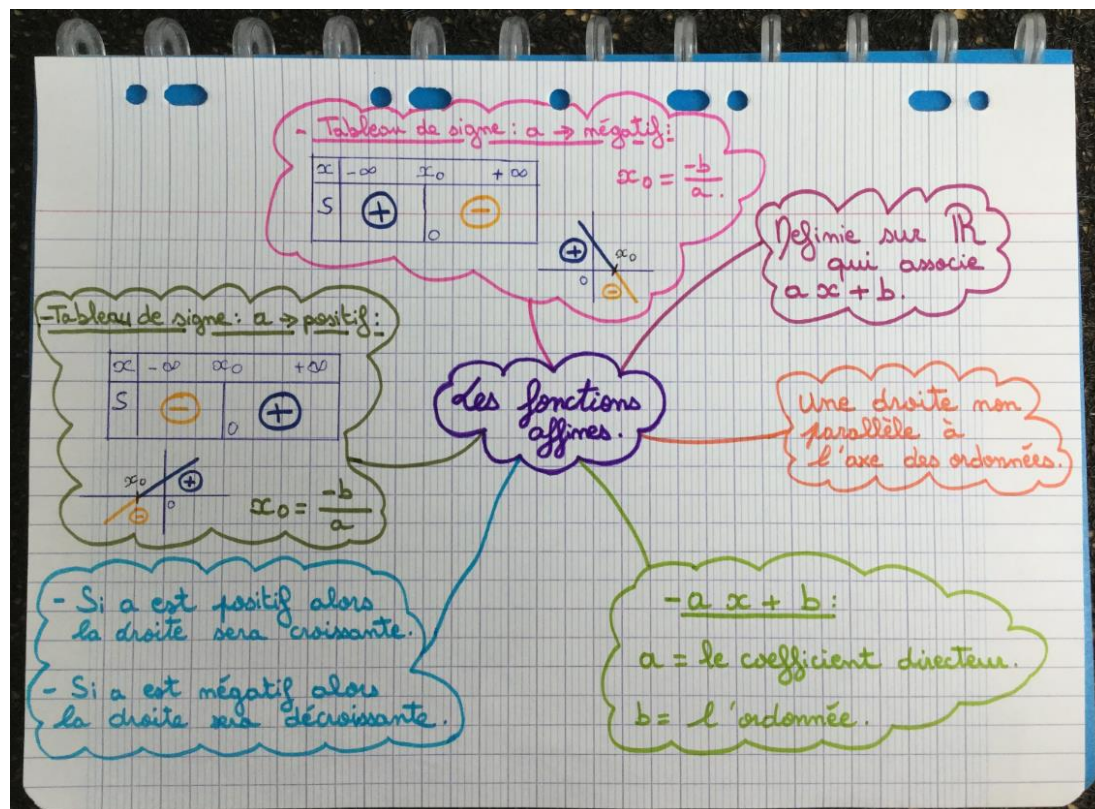 - Tableau de signe : a → négatif :
x -∞ x0 +∞
S + -
0
x0 = -b/a.
+ x0
0 -
Definie sur ℝ
qui associe
a x + b.
- Tableau de signe : a → positif :
x -∞ x0 +∞
S - +
0
x0 +
- 0
x0 = -b/a
Les fonctions
affines.
Une droite non
parallèle à
l'axe des ordonnées.
- Si a est positif alors
la droite sera croissante.
- Si a est négatif alors
la droite sera décroissante.
- a x + b :
a = le coefficient directeur.
b = l'ordonnée.